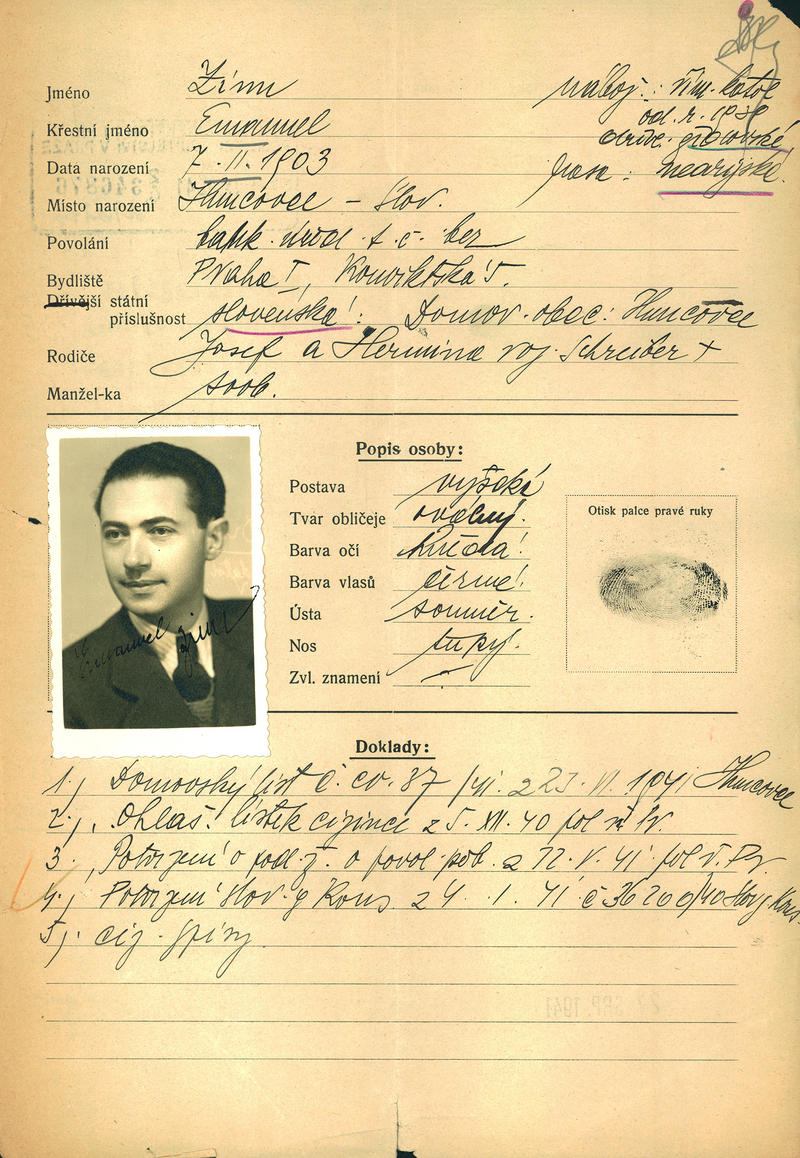 Jméno Zinn nábož.: řím. katol
Křestní jméno Emanuel od r. 1939
dříve židovské
Data narození 7. II. 1903 rasa: nearijská.
Místo narození Huncovce – Slov.
Povolání bank. úřed. t. č. bez
Bydliště Praha I, Konviktská 5.
Dřívější státní
příslušnost slovenská! Domov. obec: Huncovce
Rodiče Josef a Hermina roz. Schreiber +
Manžel-ka svob.
Popis osoby:
Postava vysoká
Tvar obličeje oválný.
Barva očí hnědá!
Barva vlasů černé!
Ústa souměr.
Nos tupý.
Zvl. znamení —
Otisk palce pravé ruky
Emanuel Zinn
Doklady:
1.) Domovský list č. 87/41 z 23. VI. 1941 Huncovce
2.) Ohlaš. lístek cizince z 5. XII. 40 pol
3. Potvrzení o pod. ž. o povol. pob. z 12. V. 41 pol. ř. Pr.
4.) Potvrzení Slov. g Kons. z 4. 1. 41 č 36260/40 Slov g Kons.
5). ciz.
SRP. 1941